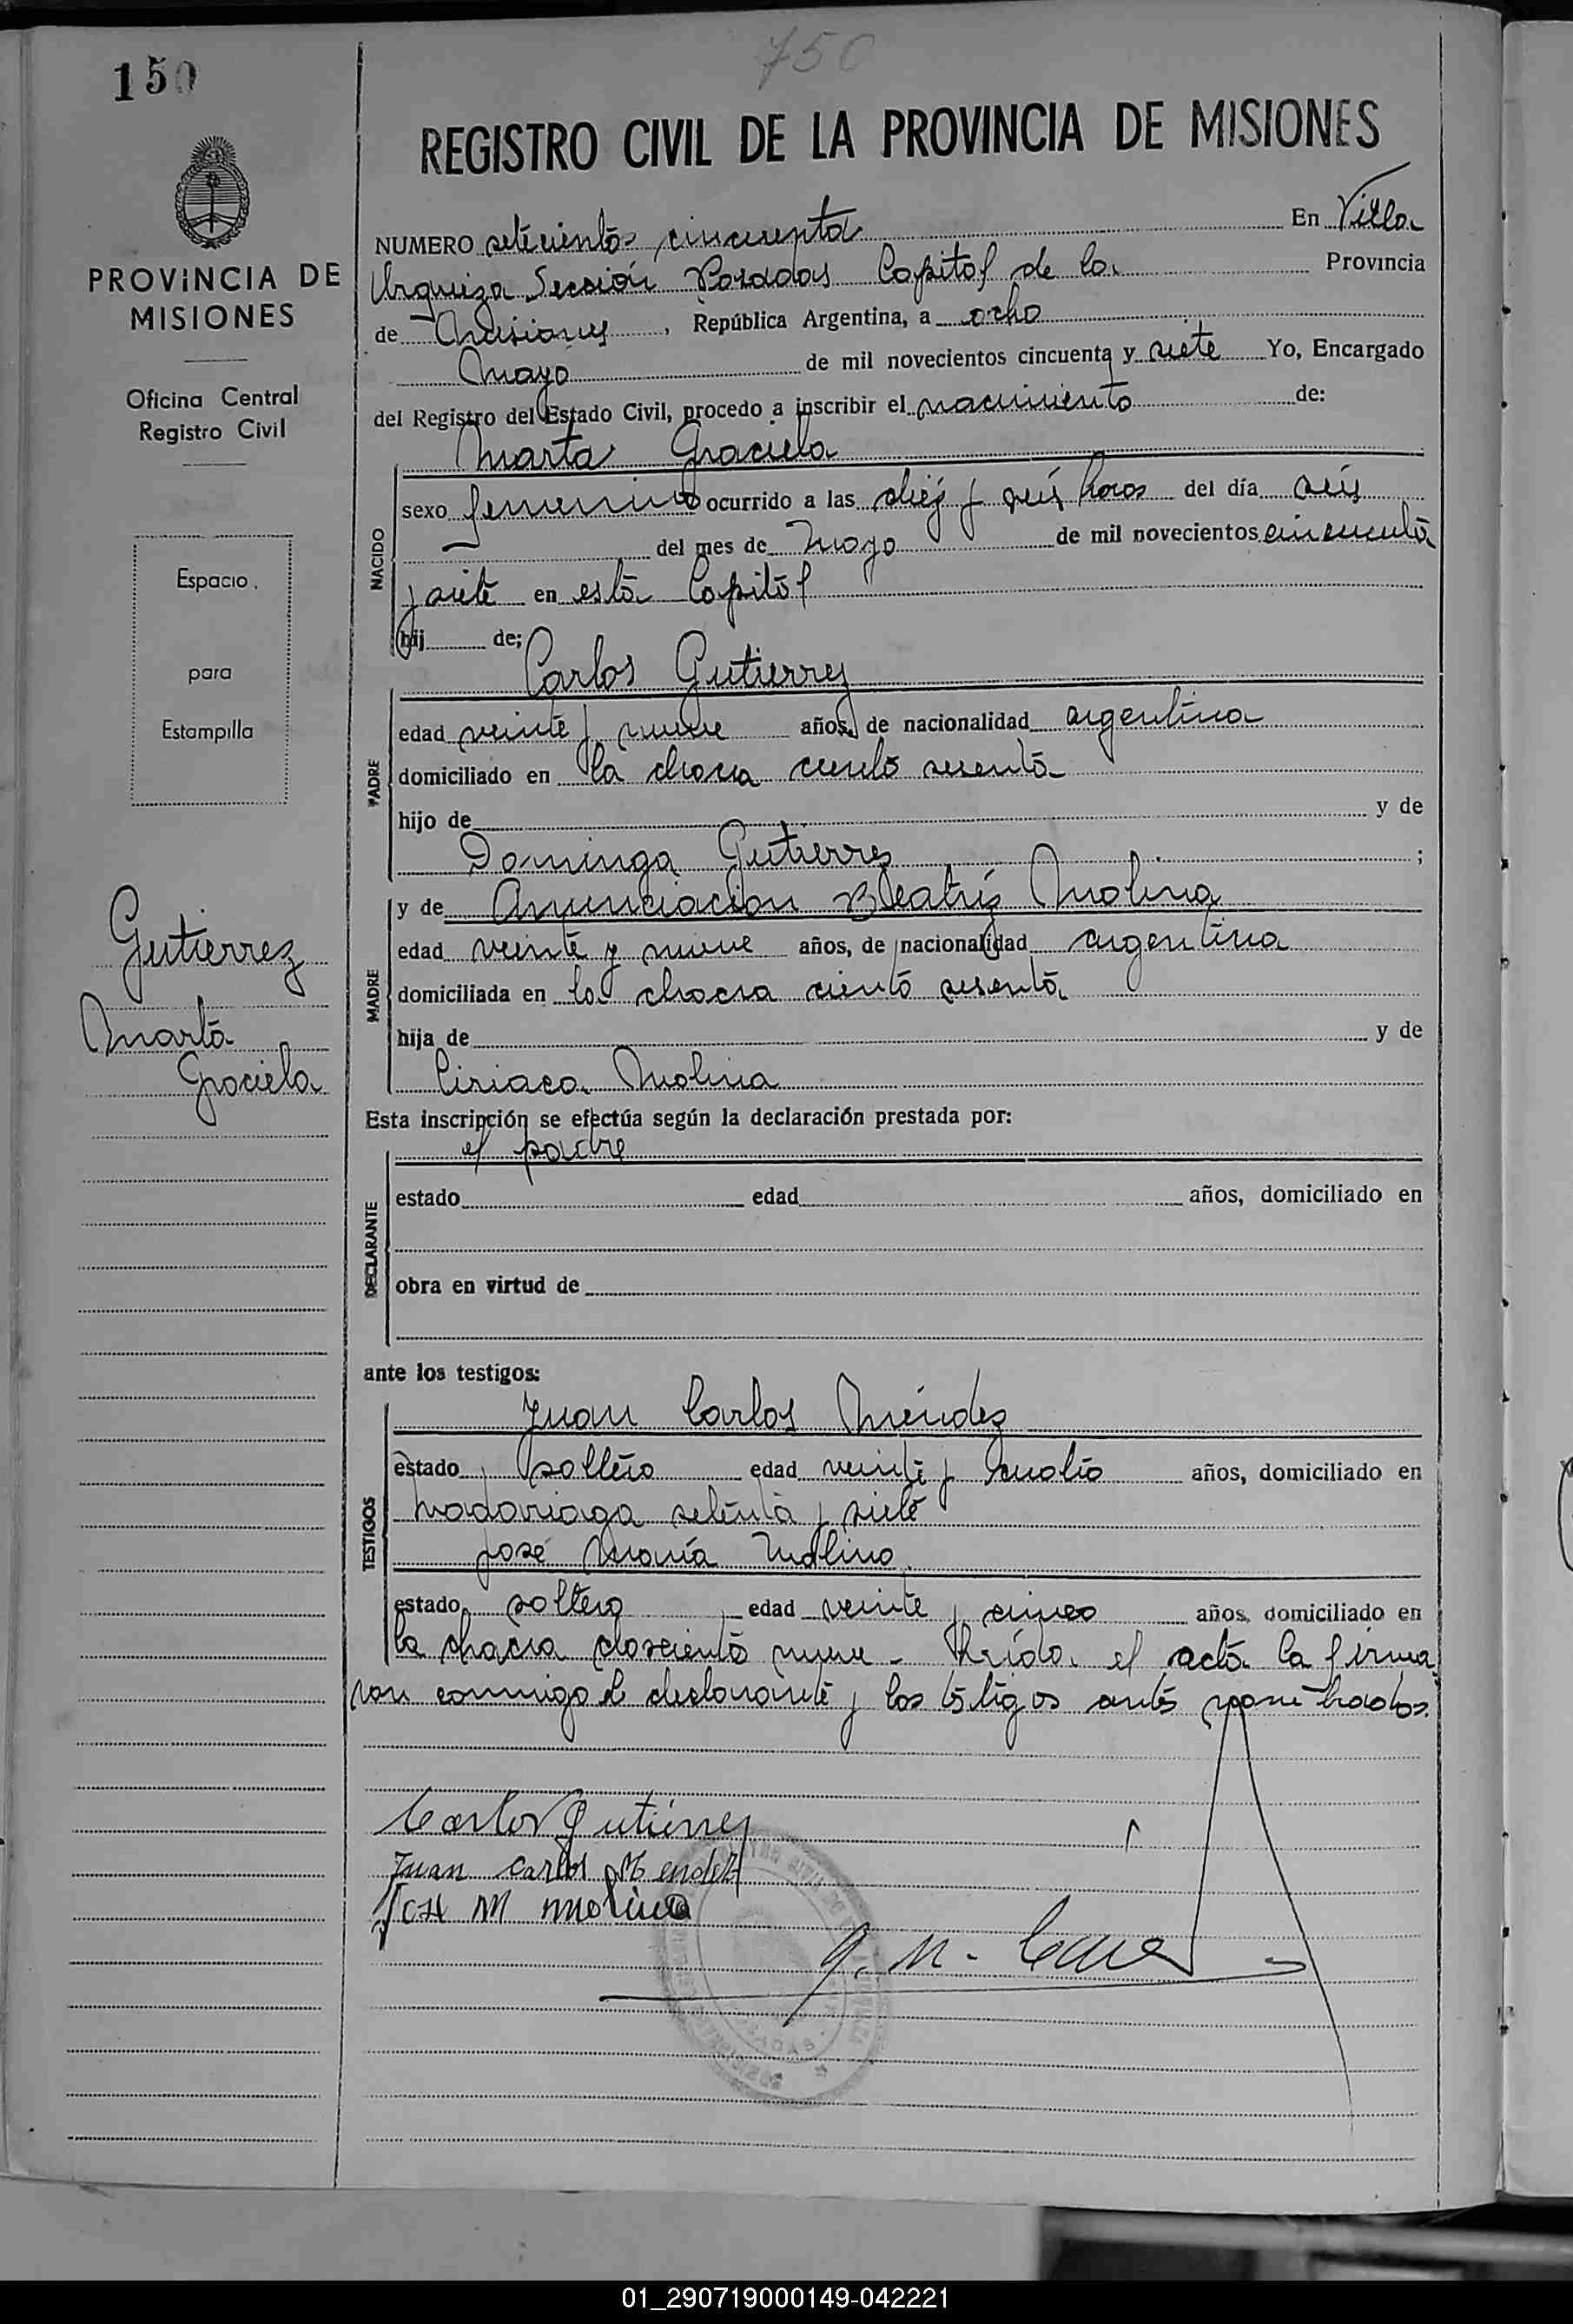 750
150
REGISTRO CIVIL DE LA PROVINCIA DE MISIONES
PROVINCIA DE
MISIONES
Oficina Central
Registro Civil
Espacio
para
Estampilla
Gutierrez
Marta
Graciela
NUMERO setecientos cincuenta En Villa
Urquiza Sección Posadas Capital de la Provincia
de Misiones, República Argentina, a ocho
Mayo de mil novecientos cincuenta y siete Yo, Encargado
del Registro del Estado Civil, procedo a inscribir el nacimiento de:
Marta Graciela
NACIDO
sexo femenino ocurrido a las diez y seis horas del día seis
del mes de Mayo de mil novecientos cincuenta
y siete en esta Capital
hij de;
Carlos Gutierrez
PADRE
edad veinte y nueve años, de nacionalidad argentina
domiciliado en la chacra ciento sesenta
hijo de y de
Dominga Gutierrez ;
y de Anunciacion Beatriz Molina
MADRE
edad veinte y nueve años, de nacionalidad argentina
domiciliada en la chacra ciento sesenta
hija de y de
Ciriaca Molina
Esta inscripción se efectúa según la declaración prestada por:
el padre
DECLARANTE
estado edad años, domiciliado en
obra en virtud de
ante los testigos:
Juan Carlos Méndez
TESTIGOS
estado soltero edad veinte y cuatro años, domiciliado en
Madariaga setenta y siete
José María Molina
estado soltero edad veinte y cinco años, domiciliado en
la chacra doscientos nueve - Leída el acta la firma
ron conmigo el declarante y los testigos antes nombrados.
Carlos Gutiérrez
Juan Carlos Mendez
José M molina
01_290719000149-042221